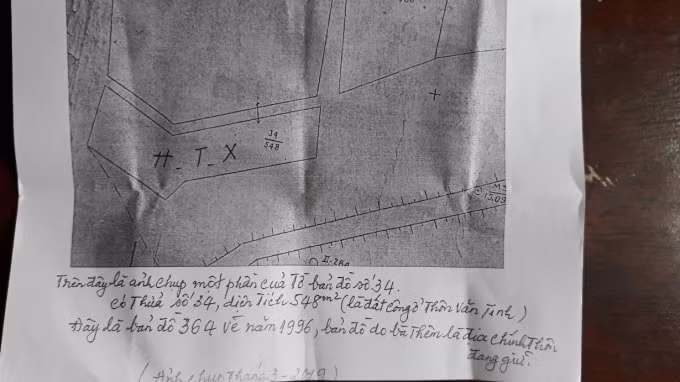 34
548
H_T_X
M
13.09
II-284
Trên đây là ảnh chụp một phần của Tờ bản đồ số 34.
có Thửa số 34, diện Tích 548m² (là đất công ở Thôn Văn Tinh)
Đây là bản đồ 364 vẽ năm 1996, bản đồ do bà Thêm là địa chính Thôn
đang giữ.
(Ảnh chụp Tháng 3-2019)